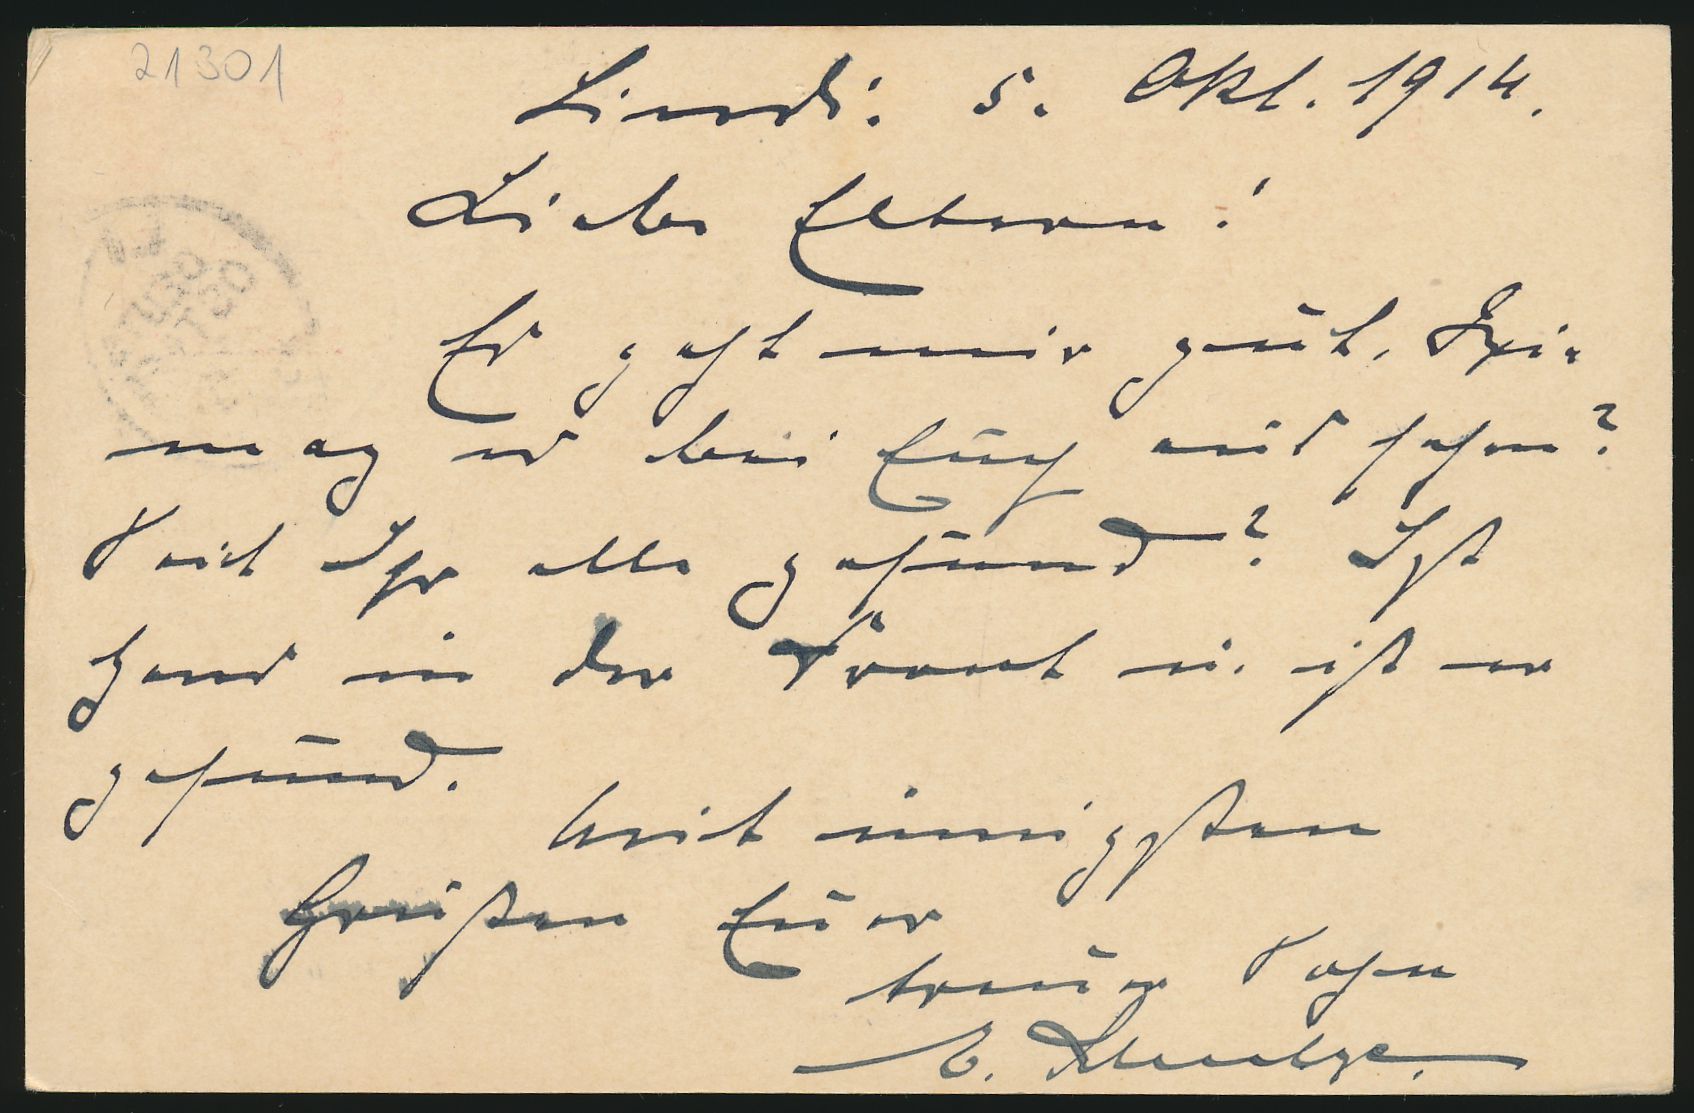 21301
Lindi. 5. Okt. 1914.
Liebe Eltern!
Es geht mir gut. Wie
mag es bei Euch aussehen?
Seit Ihr alle gesund? Ist
Hans in der Front u. ist er
gesund.
Mit innigsten
Grüßen Euer
treuer Sohn